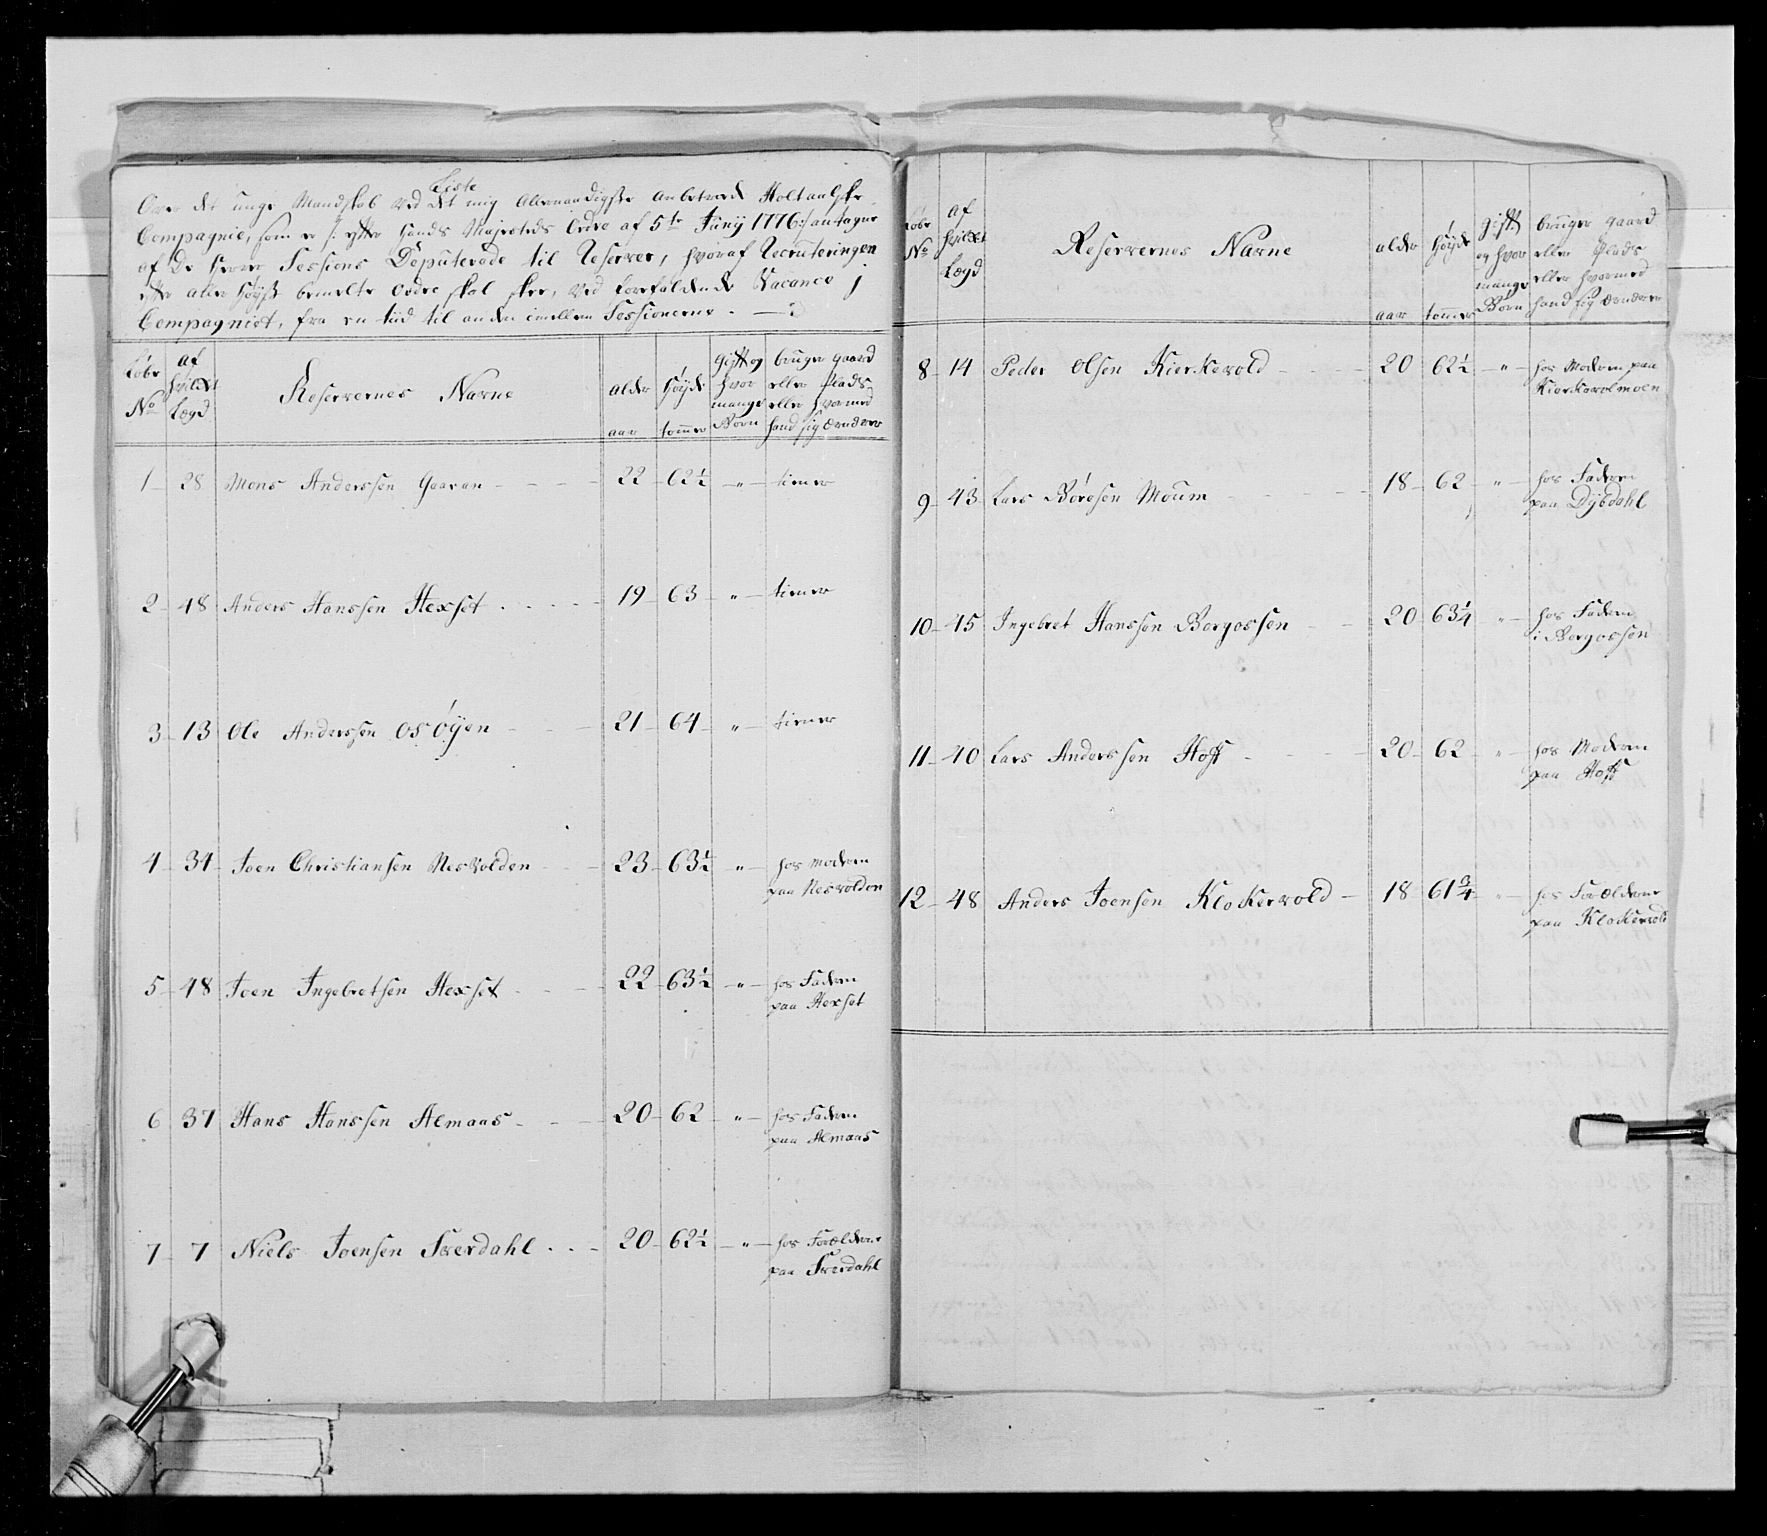 Liste
Over det unge Mandskab ved det mig allernaadigste anbetroede Holtaalske
Compagnie, som er j følge Hands Majestets Ordre af 5te Junij 1776: antagne
af De Herrer Sessions Deputerede til Reserver, hvoraf Recruteringen
efter aller høyst bemelte Ordre skal skee, ved forefaldende Vacance j
Compagniet, fra en tiid til anden imellem Sessionerne.
Løbe No
af hvilket Lægd
Reservernes Navne
alder aar
Høyde tommer
gift og hvor mange Børn
bruger gaard eller Plads eller hvormed hand sig ernærer
1 28 Mons Anderssen Gaaren 22 62½ " tiener
2 48 Anders Hanssen Hexset 19 63 " tiener
3 13 Ole Anderssen Osøyen 21 64 " tiener
4 34 Joen Christiansen Nesvolden 23 63½ " hos Modren
paa Nesvolden
5 48 Joen Ingebretsen Hexset 22 63½ " hos Fadren
paa Hexset
6 37 Hans Hanssen Almaas 20 62 " hos Fadren
paa Almaas
7 7 Niels Joensen Sverdahl 20 62½ " hos Forældrene
paa Sverdahl
Løbe No
af hvilket Lægd
Reservernes Navne
alder aar
Høyde tommer
gift og hvor mange Børn
bruger gaard eller Plads eller hvormed hand sig ernærer
8 14 Peder Olsen Kierkevold 20 62½ " hos Modren paa
Kierkevolmoen
9 43 Lars Børesen Moum 18 62 " hos Fadren
paa Dybdahl
10 45 Ingebret Hanssen Bergossen 20 63¼ " hos Fadren
i Bergossen
11 40 Lars Anderssen Hoff 20 62 " hos Modren
paa Hoff
12 48 Anders Joensen Klokervold 18 61¾ " hos Forældrene
paa Klokervold